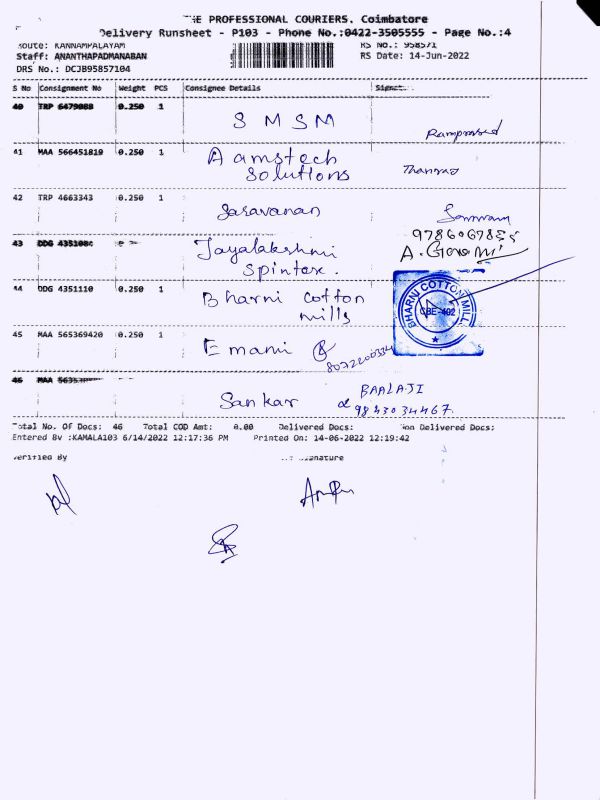 THE PROFESSIONAL COURIERS. Coimbatore
Delivery Runsheet - P103 - Phone No.:0422-3505555 - Page No.:4
Route: KANNAMPALAYAM RS No.: 958571
Staff: ANANTHAPADMANABAN RS Date: 14-Jun-2022
DRS No.: DCJB95857104
S No Consignment No Weight PCS Consignee Details
40 TRP 6479088 0.250 1 S M S M
41 MAA 566451819 0.250 1 Aamstech
Solutions
42 TRP 4663343 0.250 1 Saravanan
43 DDG 4351084 Jayalakshmi A. Gowri
Spintex.
44 DDG 4351110 0.250 1 Bharni Cotton
mills
BHARNI COTTON MILL
CBE-402
45 MAA 565369420 0.250 1 Emami
46 MAA Sankar BAALAJI
9843034467.
Total No. Of Docs: 46 Total COD Amt: 0.00 Delivered Docs: Non Delivered Docs:
Entered By :KAMALA103 6/14/2022 12:17:36 PM Printed On: 14-06-2022 12:19:42
Verified By Signature